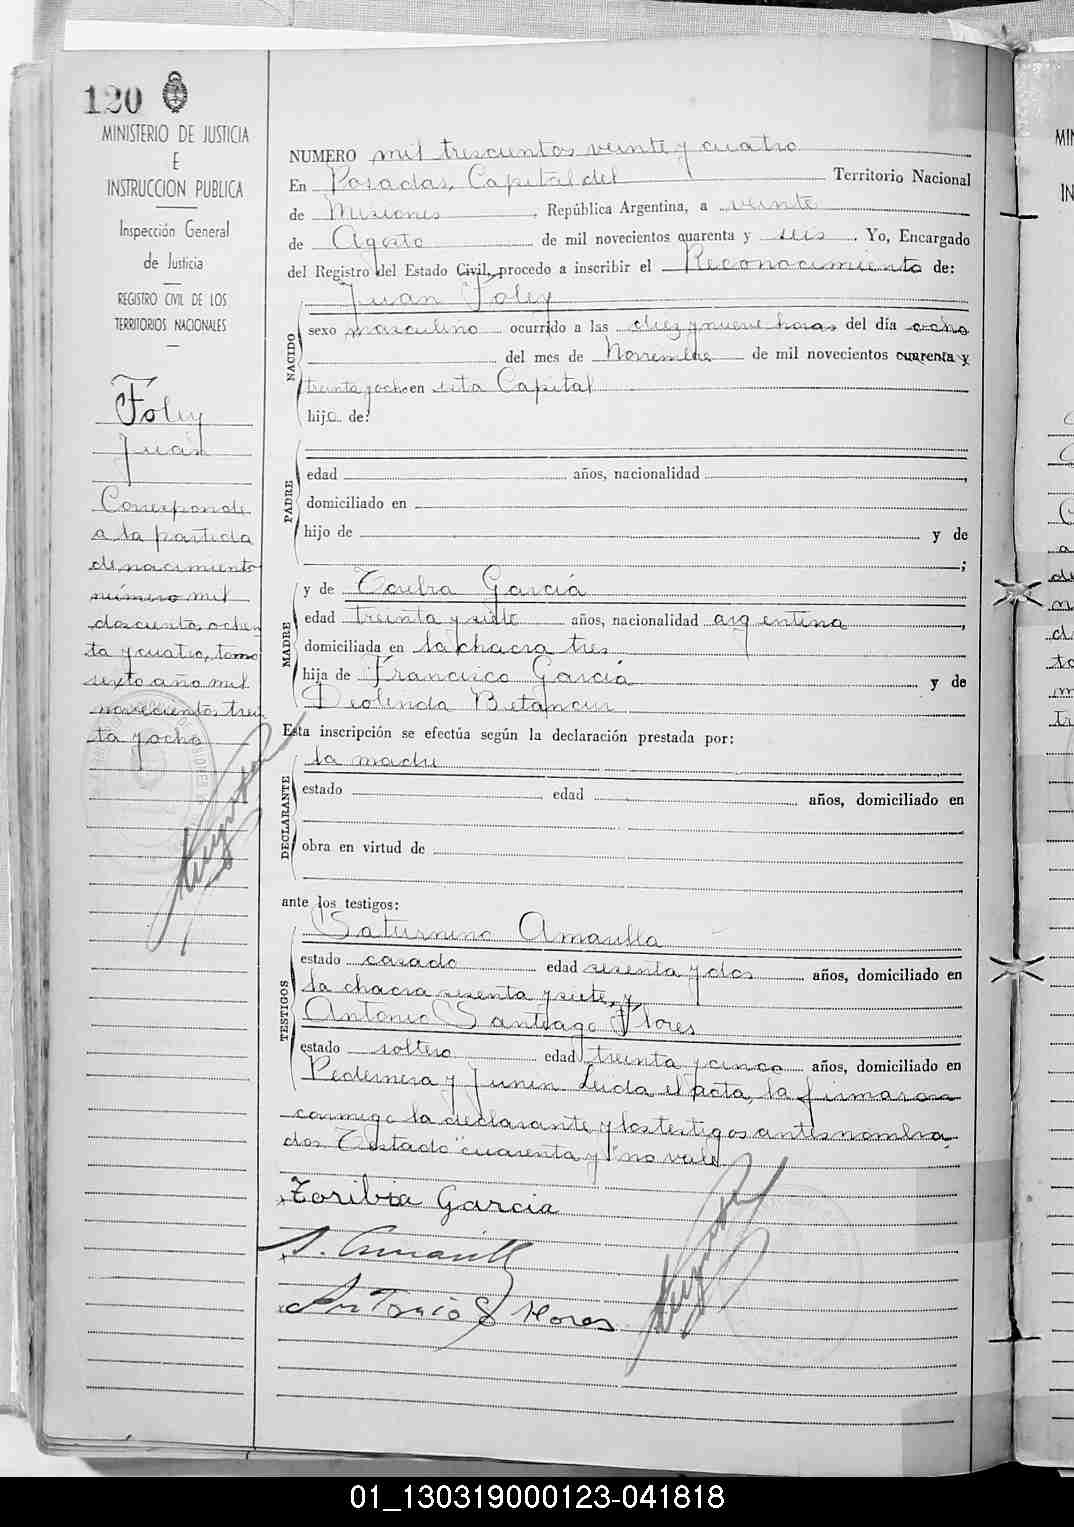 120
MINISTERIO DE JUSTICIA
E
INSTRUCCION PUBLICA
Inspección General
de Justicia
REGISTRO CIVIL DE LOS
TERRITORIOS NACIONALES
Foley
Juan
Corresponde
a la partida
de nacimiento
número mil
doscientos ochen
ta y cuatro, tomo
sexto año mil
novecientos trein
ta y ocho
NUMERO mil trescientos veinte y cuatro
En Posadas, Capital del Territorio Nacional
de Misiones, República Argentina, a veinte
de Agosto de mil novecientos quarenta y seis. Yo, Encargado
del Registro del Estado Civil, procedo a inscribir el Reconocimiento de:
NACIDO
Juan Foley
sexo masculino ocurrido a las diez y nueve horas del día ocho
del mes de Noviembre de mil novecientos cuarenta y
treinta y ocho en esta Capital
hijo de:
PADRE
edad años, nacionalidad ,
domiciliado en
hijo de y de
;
MADRE
y de Toribia García
edad treinta y siete años, nacionalidad argentina,
domiciliada en la chacra tres
hija de Francisco García y de
Deolinda Betancur
Esta inscripción se efectúa según la declaración prestada por:
DECLARANTE
la madre
estado edad años, domiciliado en
obra en virtud de
ante los testigos:
TESTIGOS
Saturnino Amarilla
estado casado edad sesenta y dos años, domiciliado en
la chacra sesenta y siete, y
Antonio Santiago Flores
estado soltero edad treinta y cinco años, domiciliado en
Pedernera y Junin Leida el acta, la firmaron
conmigo la declarante y los testigos antes nombra
dos Testado "cuarenta y" no vale
Toribia Garcia
S. Amarilla
Antonio S Flores
01_130319000123-041818